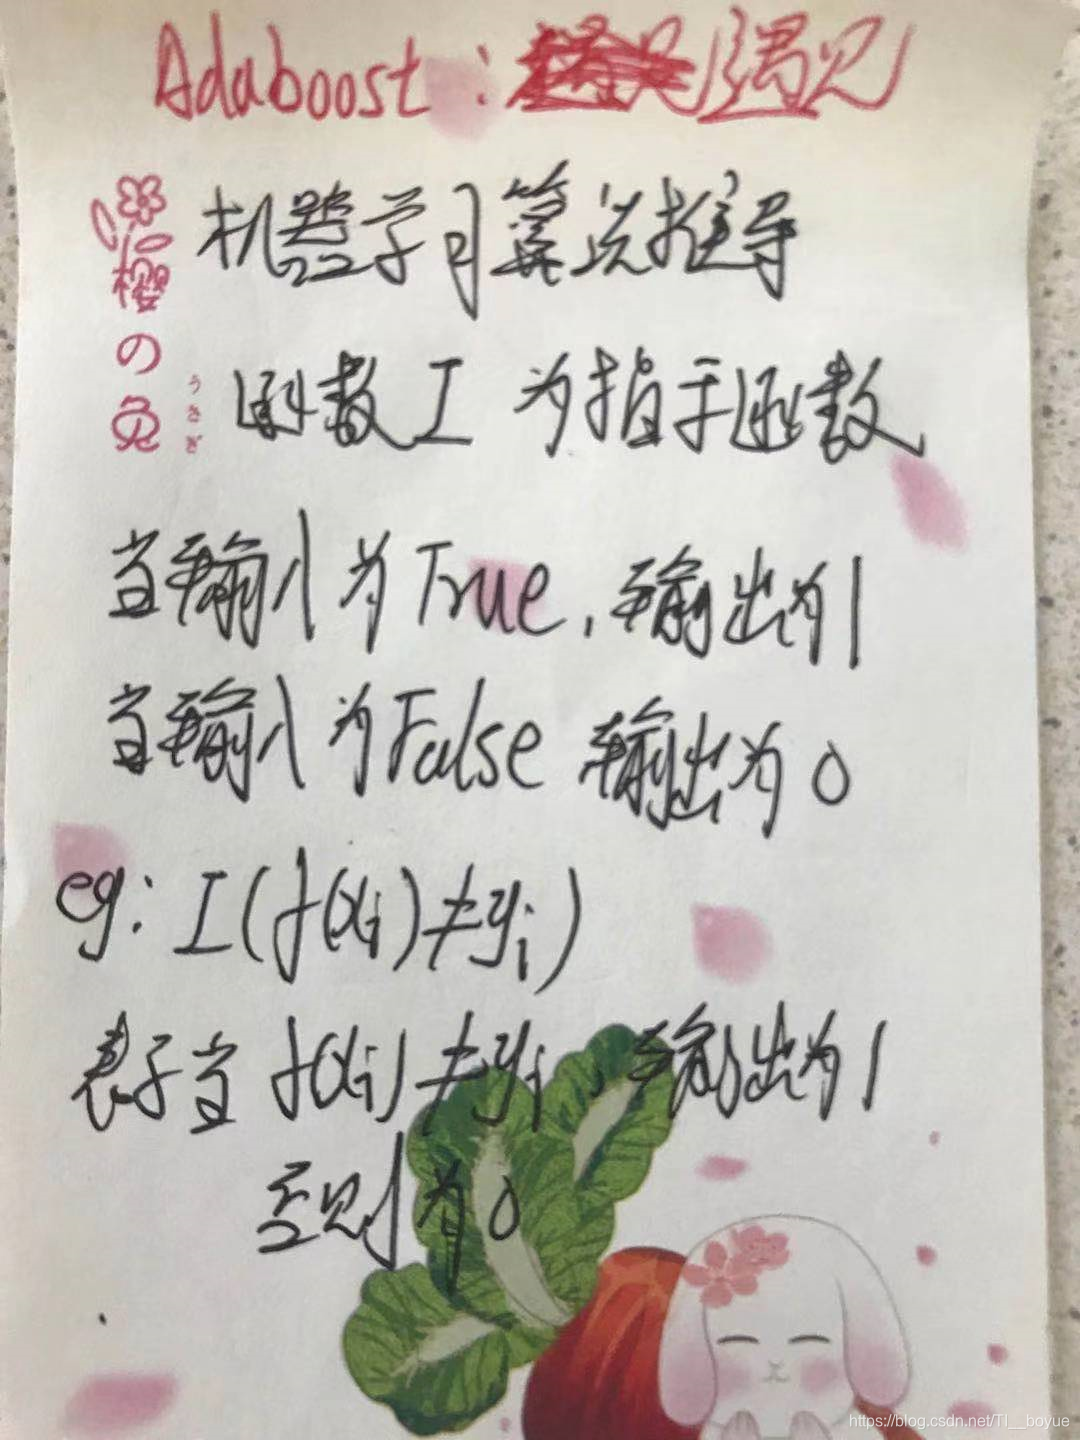 Adaboost：遇见
樱の兔
うさぎ
机器学习算法推导
函数I 为指示函数
当输入为True，输出为1
当输入为False 输出为0
eg: I(f(xi)≠yi)
表示当 f(xi)≠yi，输出为1
否则为0
https://blog.csdn.net/TI__boyue